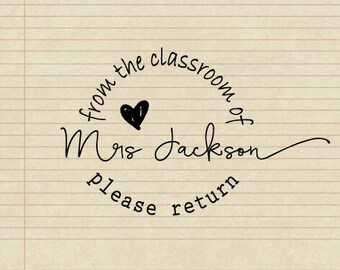 from the classroom of
Mrs Jackson
please return